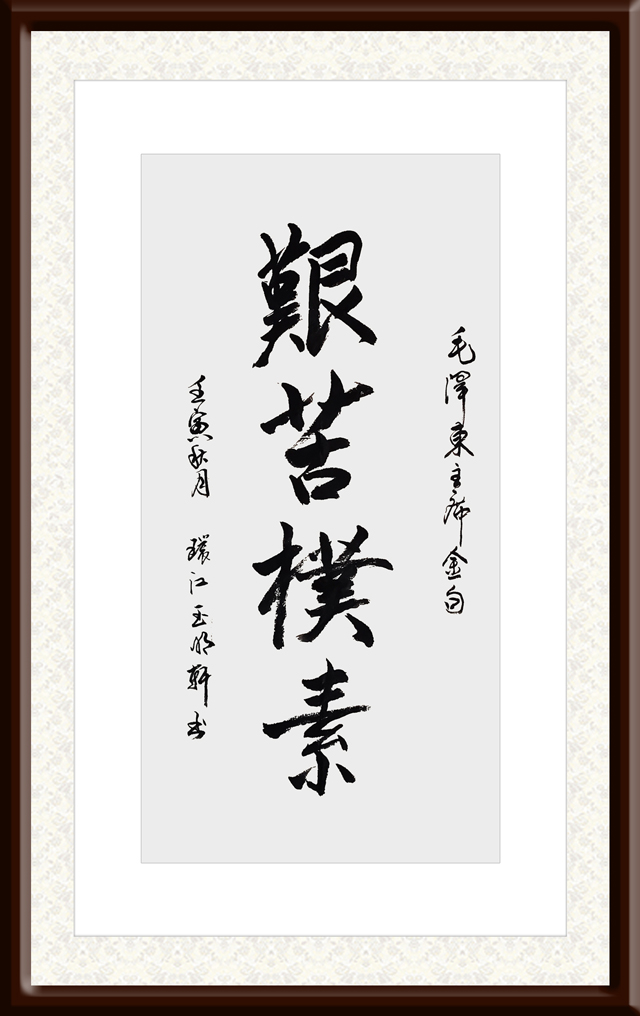 毛澤東主席金句
艱苦樸素
壬寅秋月 環江玉明軒書